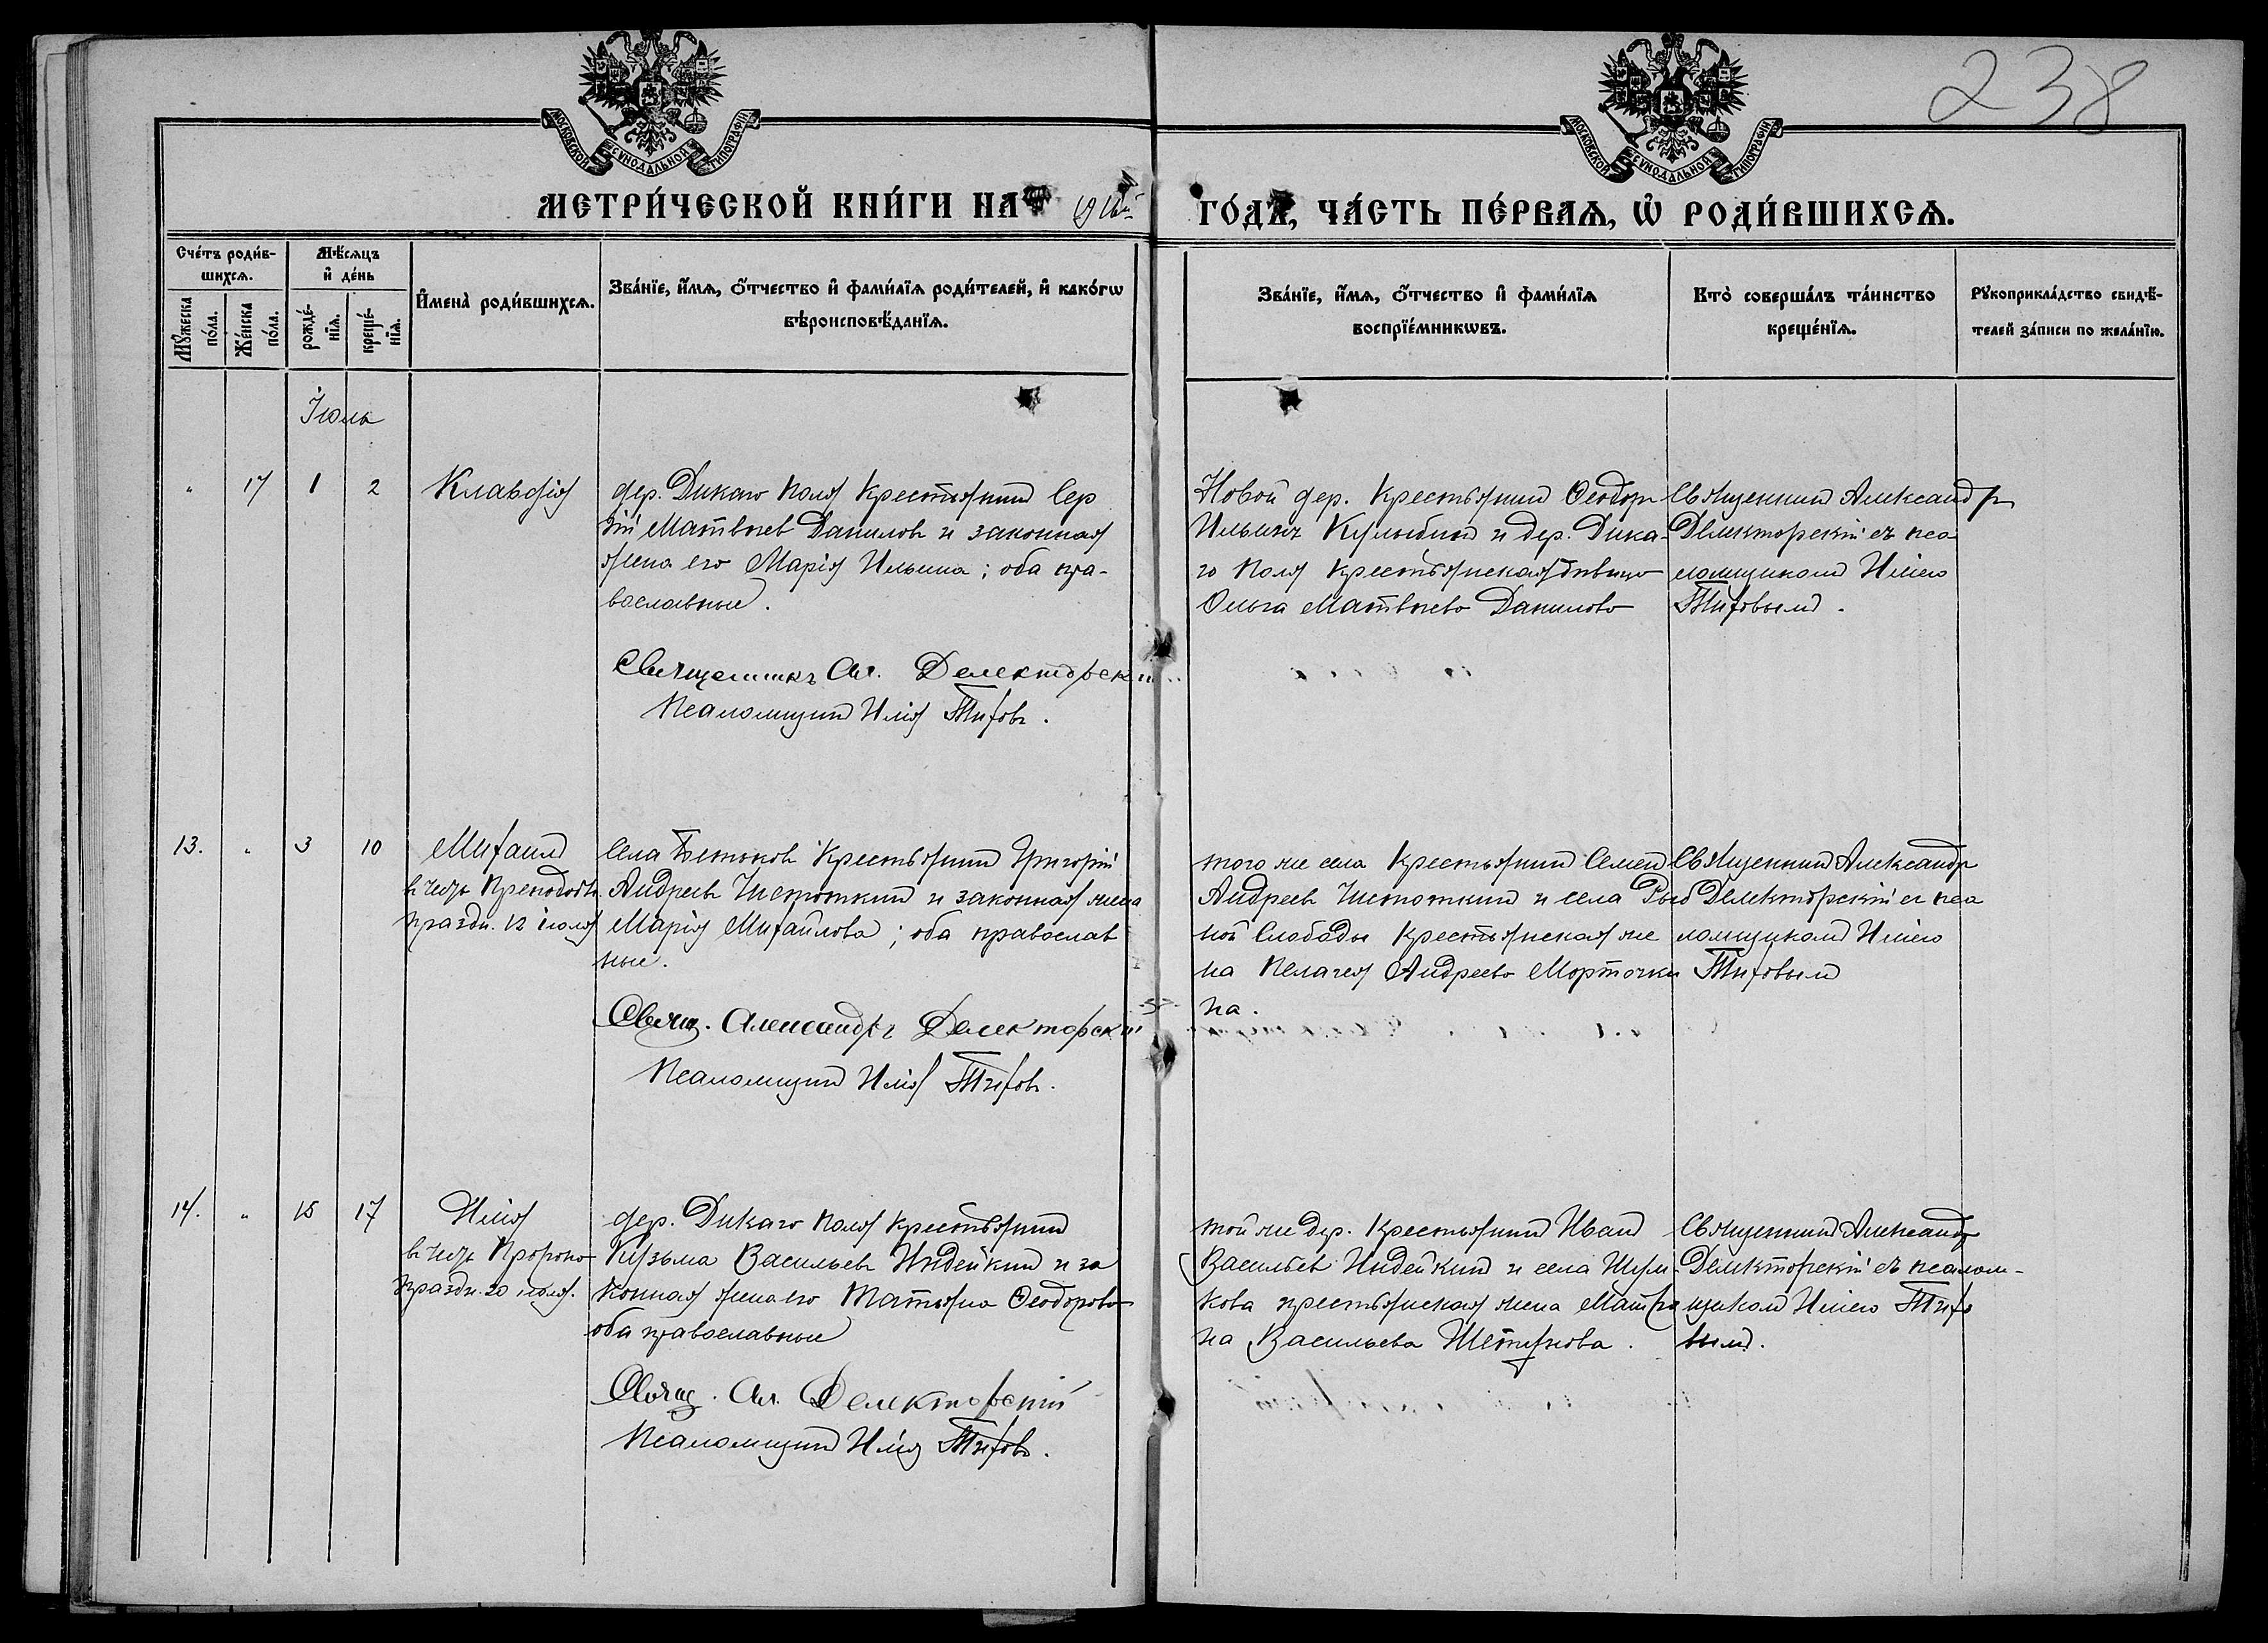 238
МОСКОВСКОЙ СѴНОДАЛЬНОЙ ТИПОГРАФІИ
МОСКОВСКОЙ СѴНОДАЛЬНОЙ ТИПОГРАФІИ
МЕТРИ́ЧЕСКОЙ КНИ́ГИ НА
ГО́ДЪ, ЧА́СТЬ ПЕ́РВАѦ, Ѡ҆ РОДИ́ВШИХСѦ.
Сче́тъ роди́в-
шихсѧ.
Мꙋ́жеска по́ла.
Же́нска по́ла.
Мѣ́сѧцъ
и҆ де́нь
рожде́-
нїѧ.
креще́-
нїѧ.
И҆мена̀ роди́вшихсѧ.
Зва́нїе, и҆́мѧ, ѻ҆́тчество и҆ фами́лїѧ роди́телей, и҆ како́гѡ
вѣроисповѣ́данїѧ.
Зва́нїе, и҆́мѧ, ѻ҆́тчество и҆ фами́лїѧ
воспрїе́мникѡвъ.
Кто̀ соверша́лъ та́инство
креще́нїѧ.
Рꙋкоприкла́дство свидѣ́-
телей за́писи по жела́нїю.
Іюль
" 17 1 2 Клавдія
дер. Дикаго Поля Крестьянин Сер
гій Матвѣев Данилов и законная
жена его Марія Ильина; оба пра-
вославные.
Священникъ Ал. Делекторскій
Псаломщик Илія Тихов.
Новой дер. Крестьянин Ѳеодор
Ильинъ и дер. Дика-
го Поля Крестьянская дѣвица
Ольга Матвѣева Данилова
Священник Александр
Делекторскій съ пса
ломщиком Иліею
Тиховым.
13. " 3 10 Михаил
в честь Преподобн.
праздн. 12 іюля
Села Крестьянин Григорій
Андреев и законная жена
Марія Михайлова; оба православ
ные.
Свящ. Александръ Делекторскій
Псаломщик Илія Тихов.
того же села Крестьянин Семен
Андреев и села Рыб
ной Слободы Крестьянская же
на Пелагея Андреева Морточки
на.
Священник Александр
Делекторскій съ пса
ломщиком Иліею
Тиховым
14. " 15 17 Илія
в честь Пророка
праздн. 20 іюля.
дер. Дикаго Поля Крестьянин
Кузьма Васильев Индейкин и за
конная жена его Татьяна Ѳеодорова
оба православные
Свящ. Ал. Делекторскій
Псаломщик Илія Тихов.
той же дер. Крестьянин Иван
Васильев Индейкин и села Шум-
кова крестьянская жена Матре
на Васильева
Священник Александр
Делекторскій съ псалом-
щиком Иліею Тихо
вым.